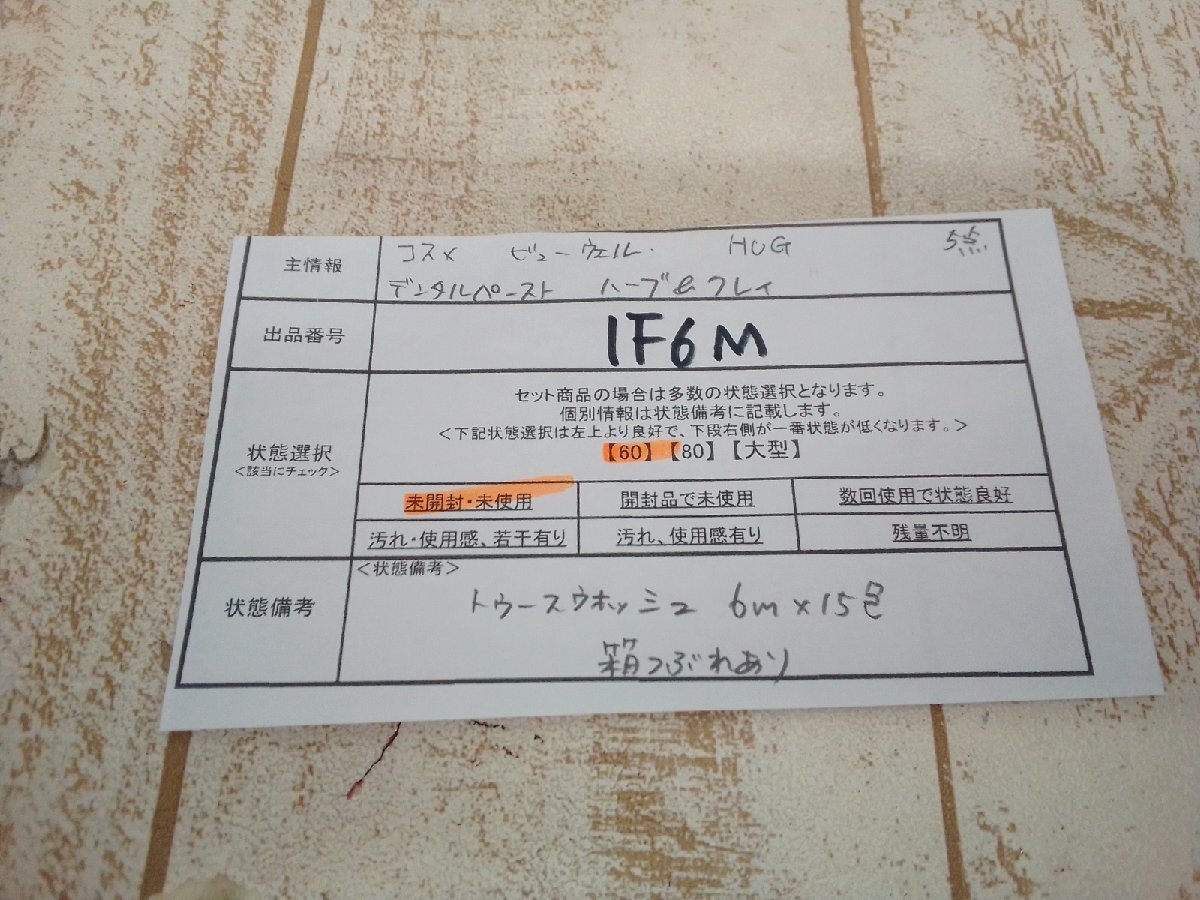 主情報
コスメ ビューウェル. HUG 5点
デンタルペースト ハーブ&クレイ
出品番号
1F6M
状態選択
<該当にチェック>
セット商品の場合は多数の状態選択となります。
個別情報は状態備考に記載します。
<下記状態選択は左上より良好で、下段右側が一番状態が低くなります。>
【60】【80】【大型】
未開封・未使用 開封品で未使用 数回使用で状態良好
汚れ・使用感、若干有り 汚れ、使用感有り 残量不明
状態備考
<状態備考>
トゥースウォッシュ 6m×15包
箱つぶれあり